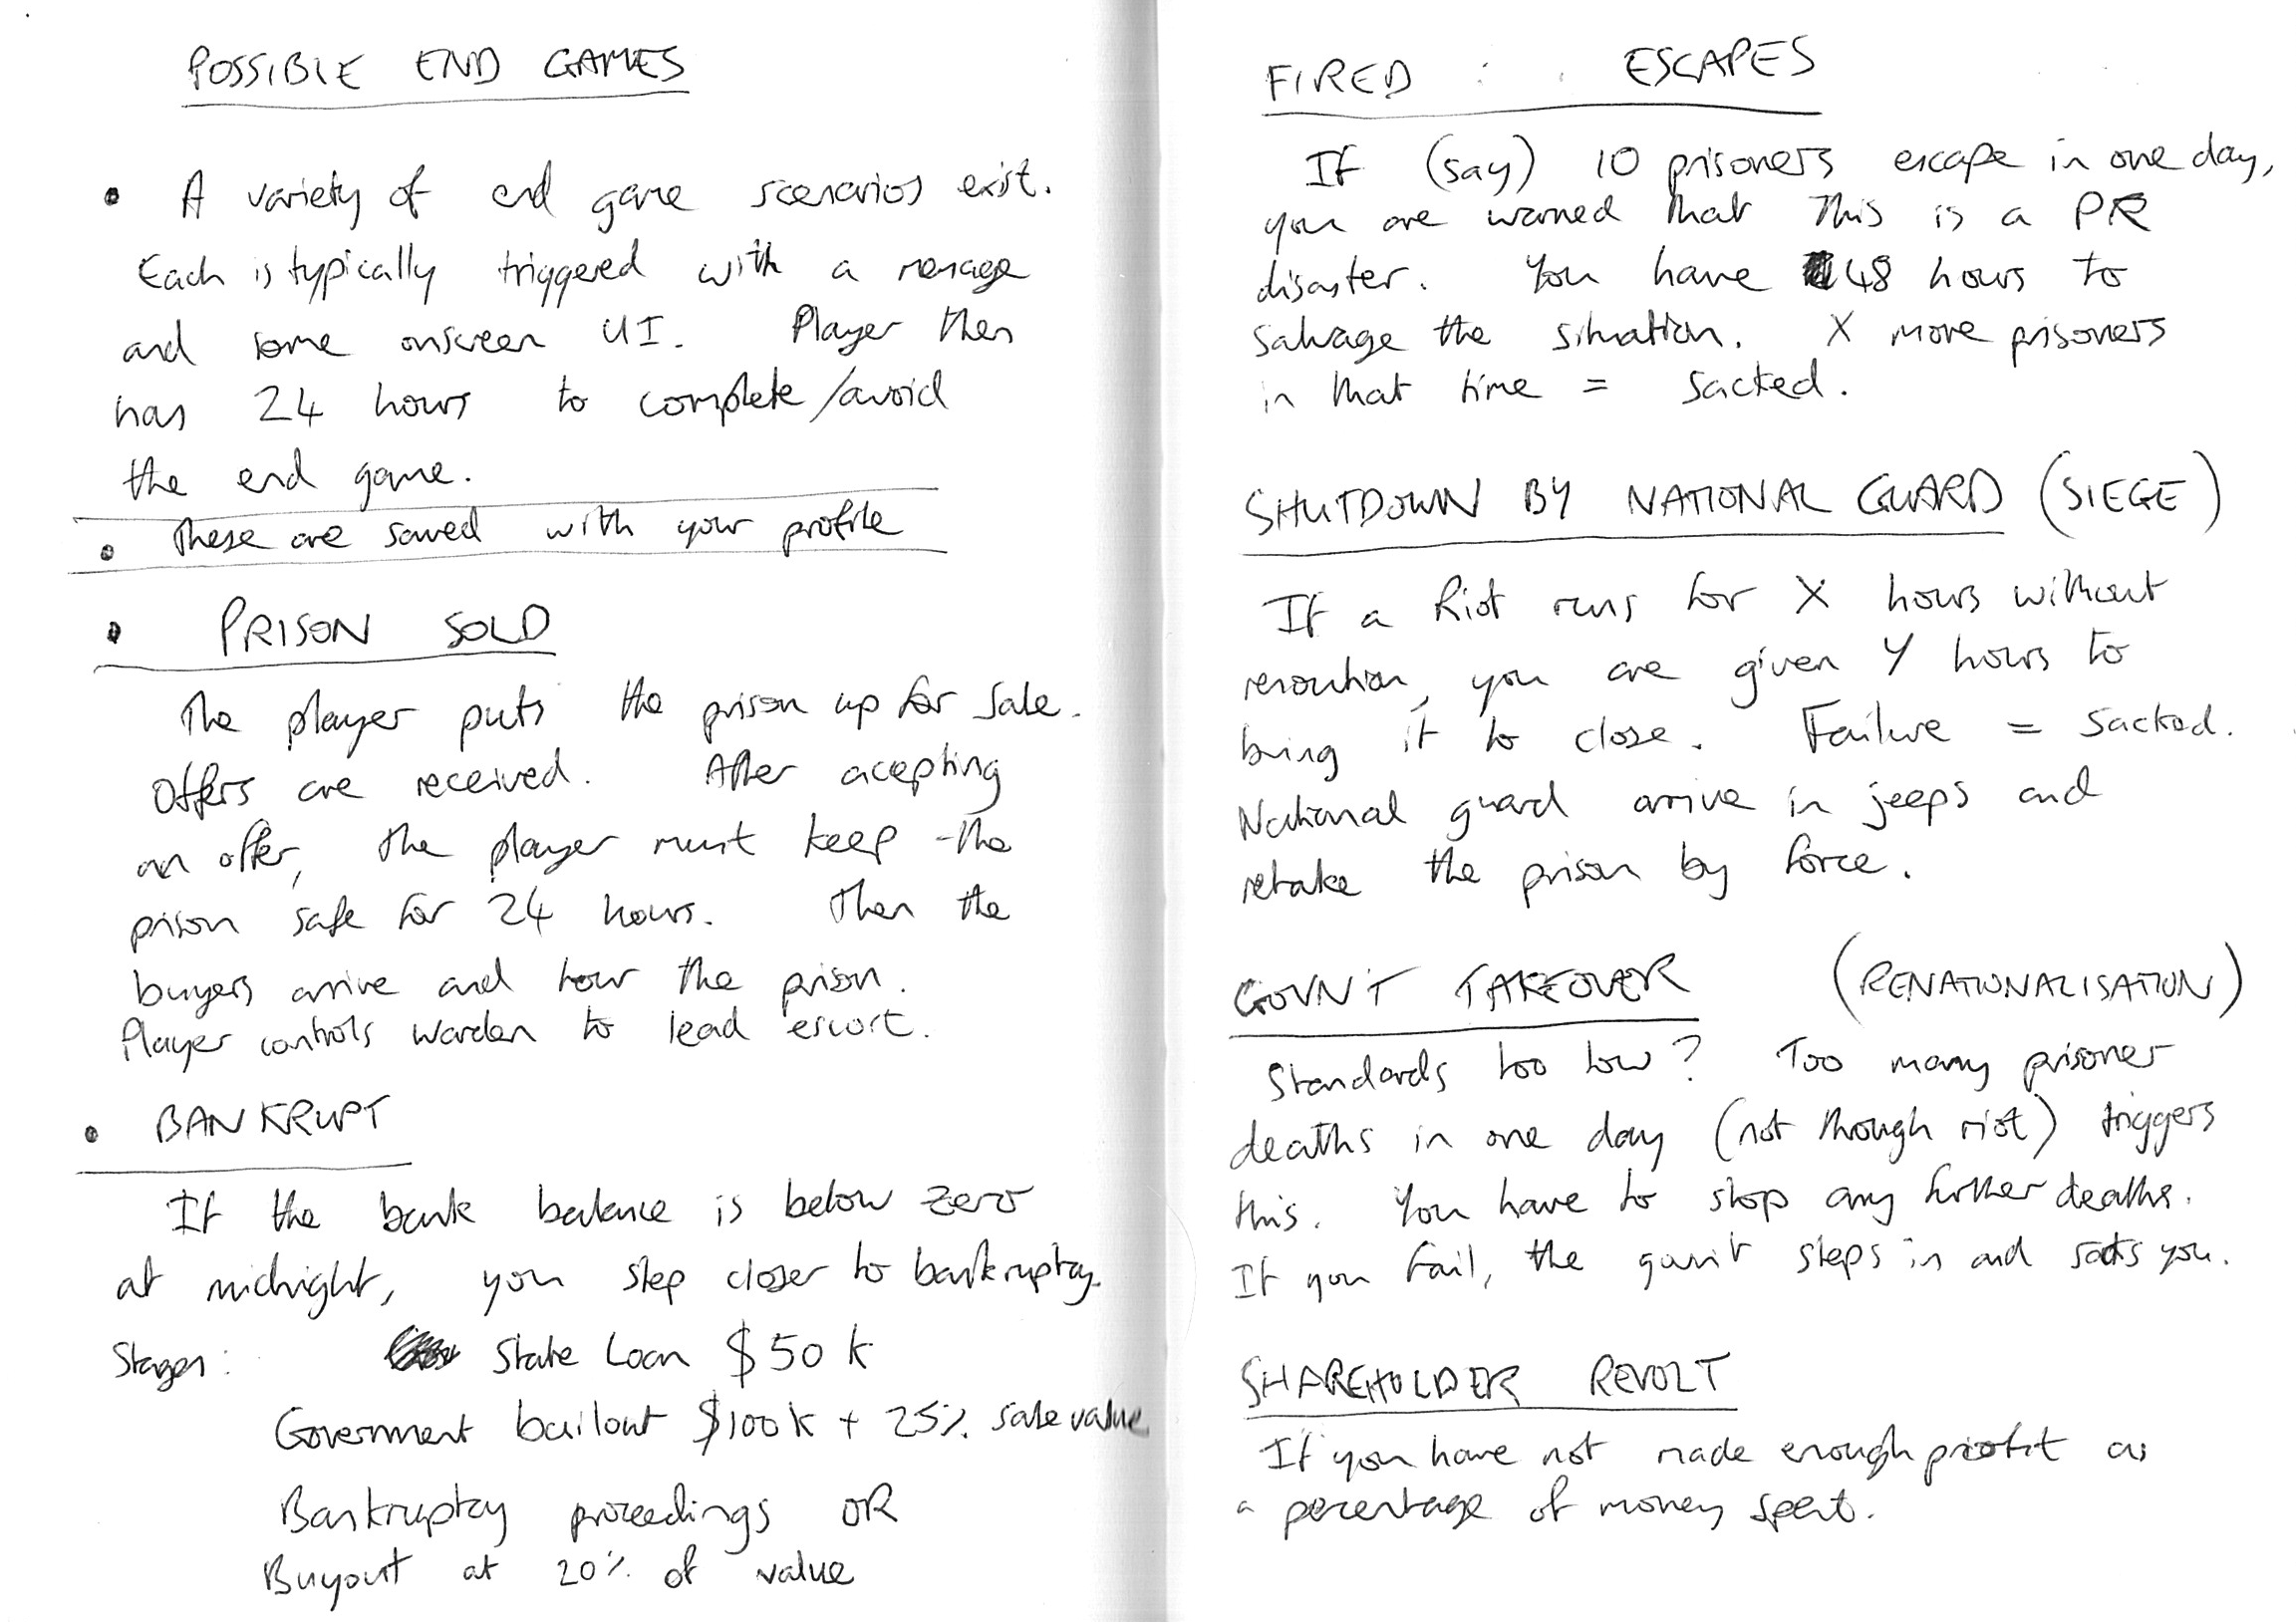 POSSIBLE END GAMES
• A variety of end game scenarios exist.
Each is typically triggered with a message
and some onscreen UI. Player then
has 24 hours to complete/avoid
the end game.
• These are saved with your profile
• PRISON SOLD
The player puts the prison up for sale.
Offers are received. After accepting
an offer, the player must keep the
prison safe for 24 hours. Then the
buyers arrive and tour the prison.
Player controls warden to lead escort.
• BANKRUPT
If the bank balance is below zero
at midnight, you step closer to bankruptcy.
Stages: State Loan $50k
Government bailout $100k + 25% sale value
Bankruptcy proceedings OR
Buyout at 20% of value
FIRED : ESCAPES
If (say) 10 prisoners escape in one day,
you are warned that this is a PR
disaster. You have 48 hours to
salvage the situation. X more prisoners
in that time = sacked.
SHUTDOWN BY NATIONAL GUARD (SIEGE)
If a Riot runs for X hours without
resolution, you are given Y hours to
bring it to close. Failure = sacked.
National guard arrive in jeeps and
retake the prison by force.
GOVN'T TAKEOVER (RENATIONALISATION)
Standards too low? Too many prisoner
deaths in one day (not through riot) triggers
this. You have to stop any further deaths.
If you fail, the govn't steps in and sacks you.
SHAREHOLDER REVOLT
If you have not made enough profit as
a percentage of money spent.